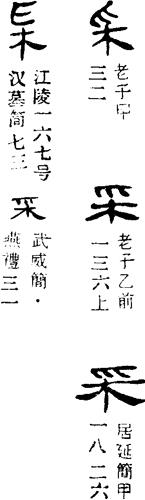 老子甲
三二
采
老子乙前
一三六上
采
居延簡甲
一八二六
江陵一六七号
汉墓简七三
采
武威簡·
燕禮三一